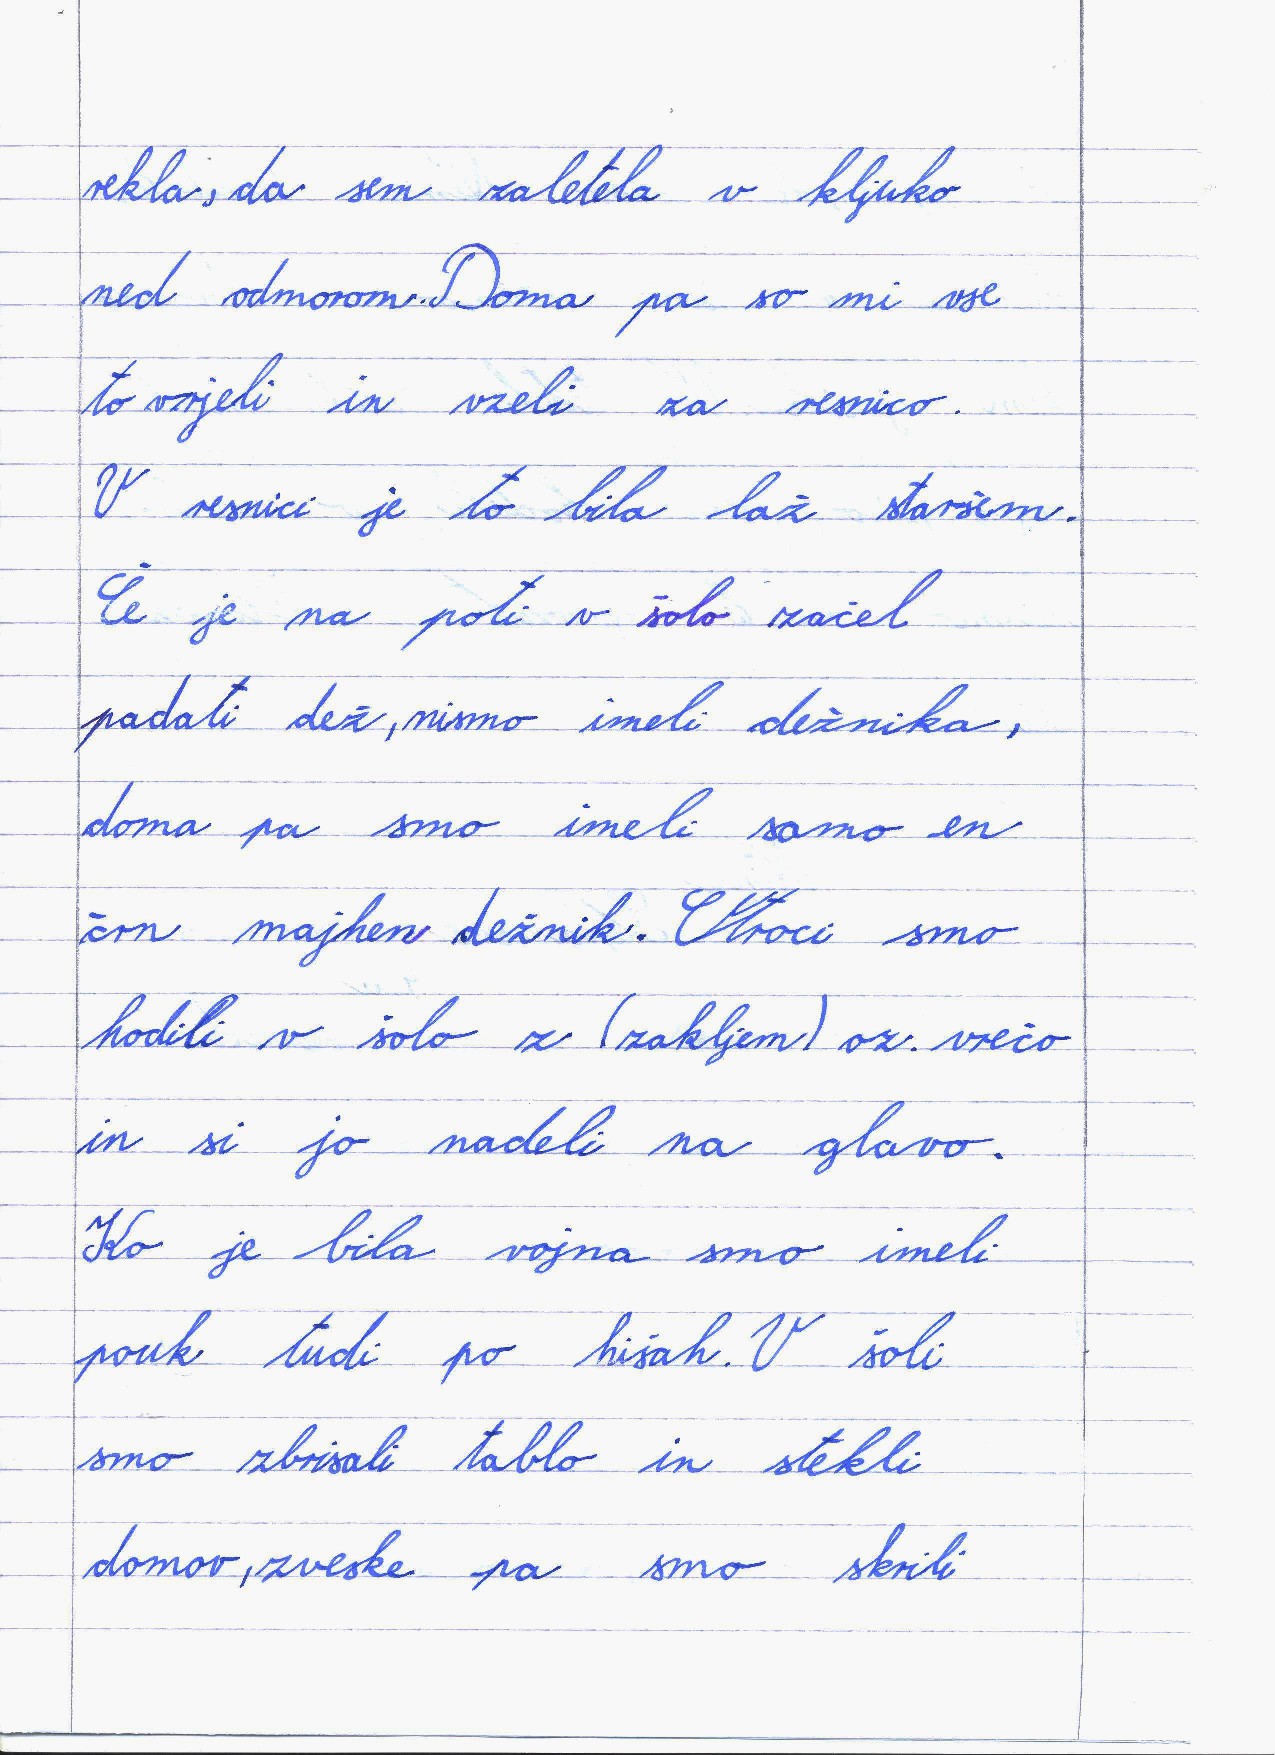 rekla, da sem zaletela v kljuko
med odmorom. Doma pa so mi vse
to vrjeli in vzeli za resnico.
V resnici je to bila laž staršem.
Če je na poti v šolo začel
padati dež, nismo imeli dežnika,
doma pa smo imeli samo en
črn majhen dežnik. Otroci smo
hodili v šolo z (zakljem) oz. vrečo
in si jo nadeli na glavo.
Ko je bila vojna smo imeli
pouk tudi po hišah. V šoli
smo zbrisali tablo in stekli
domov, zveske pa smo skrili